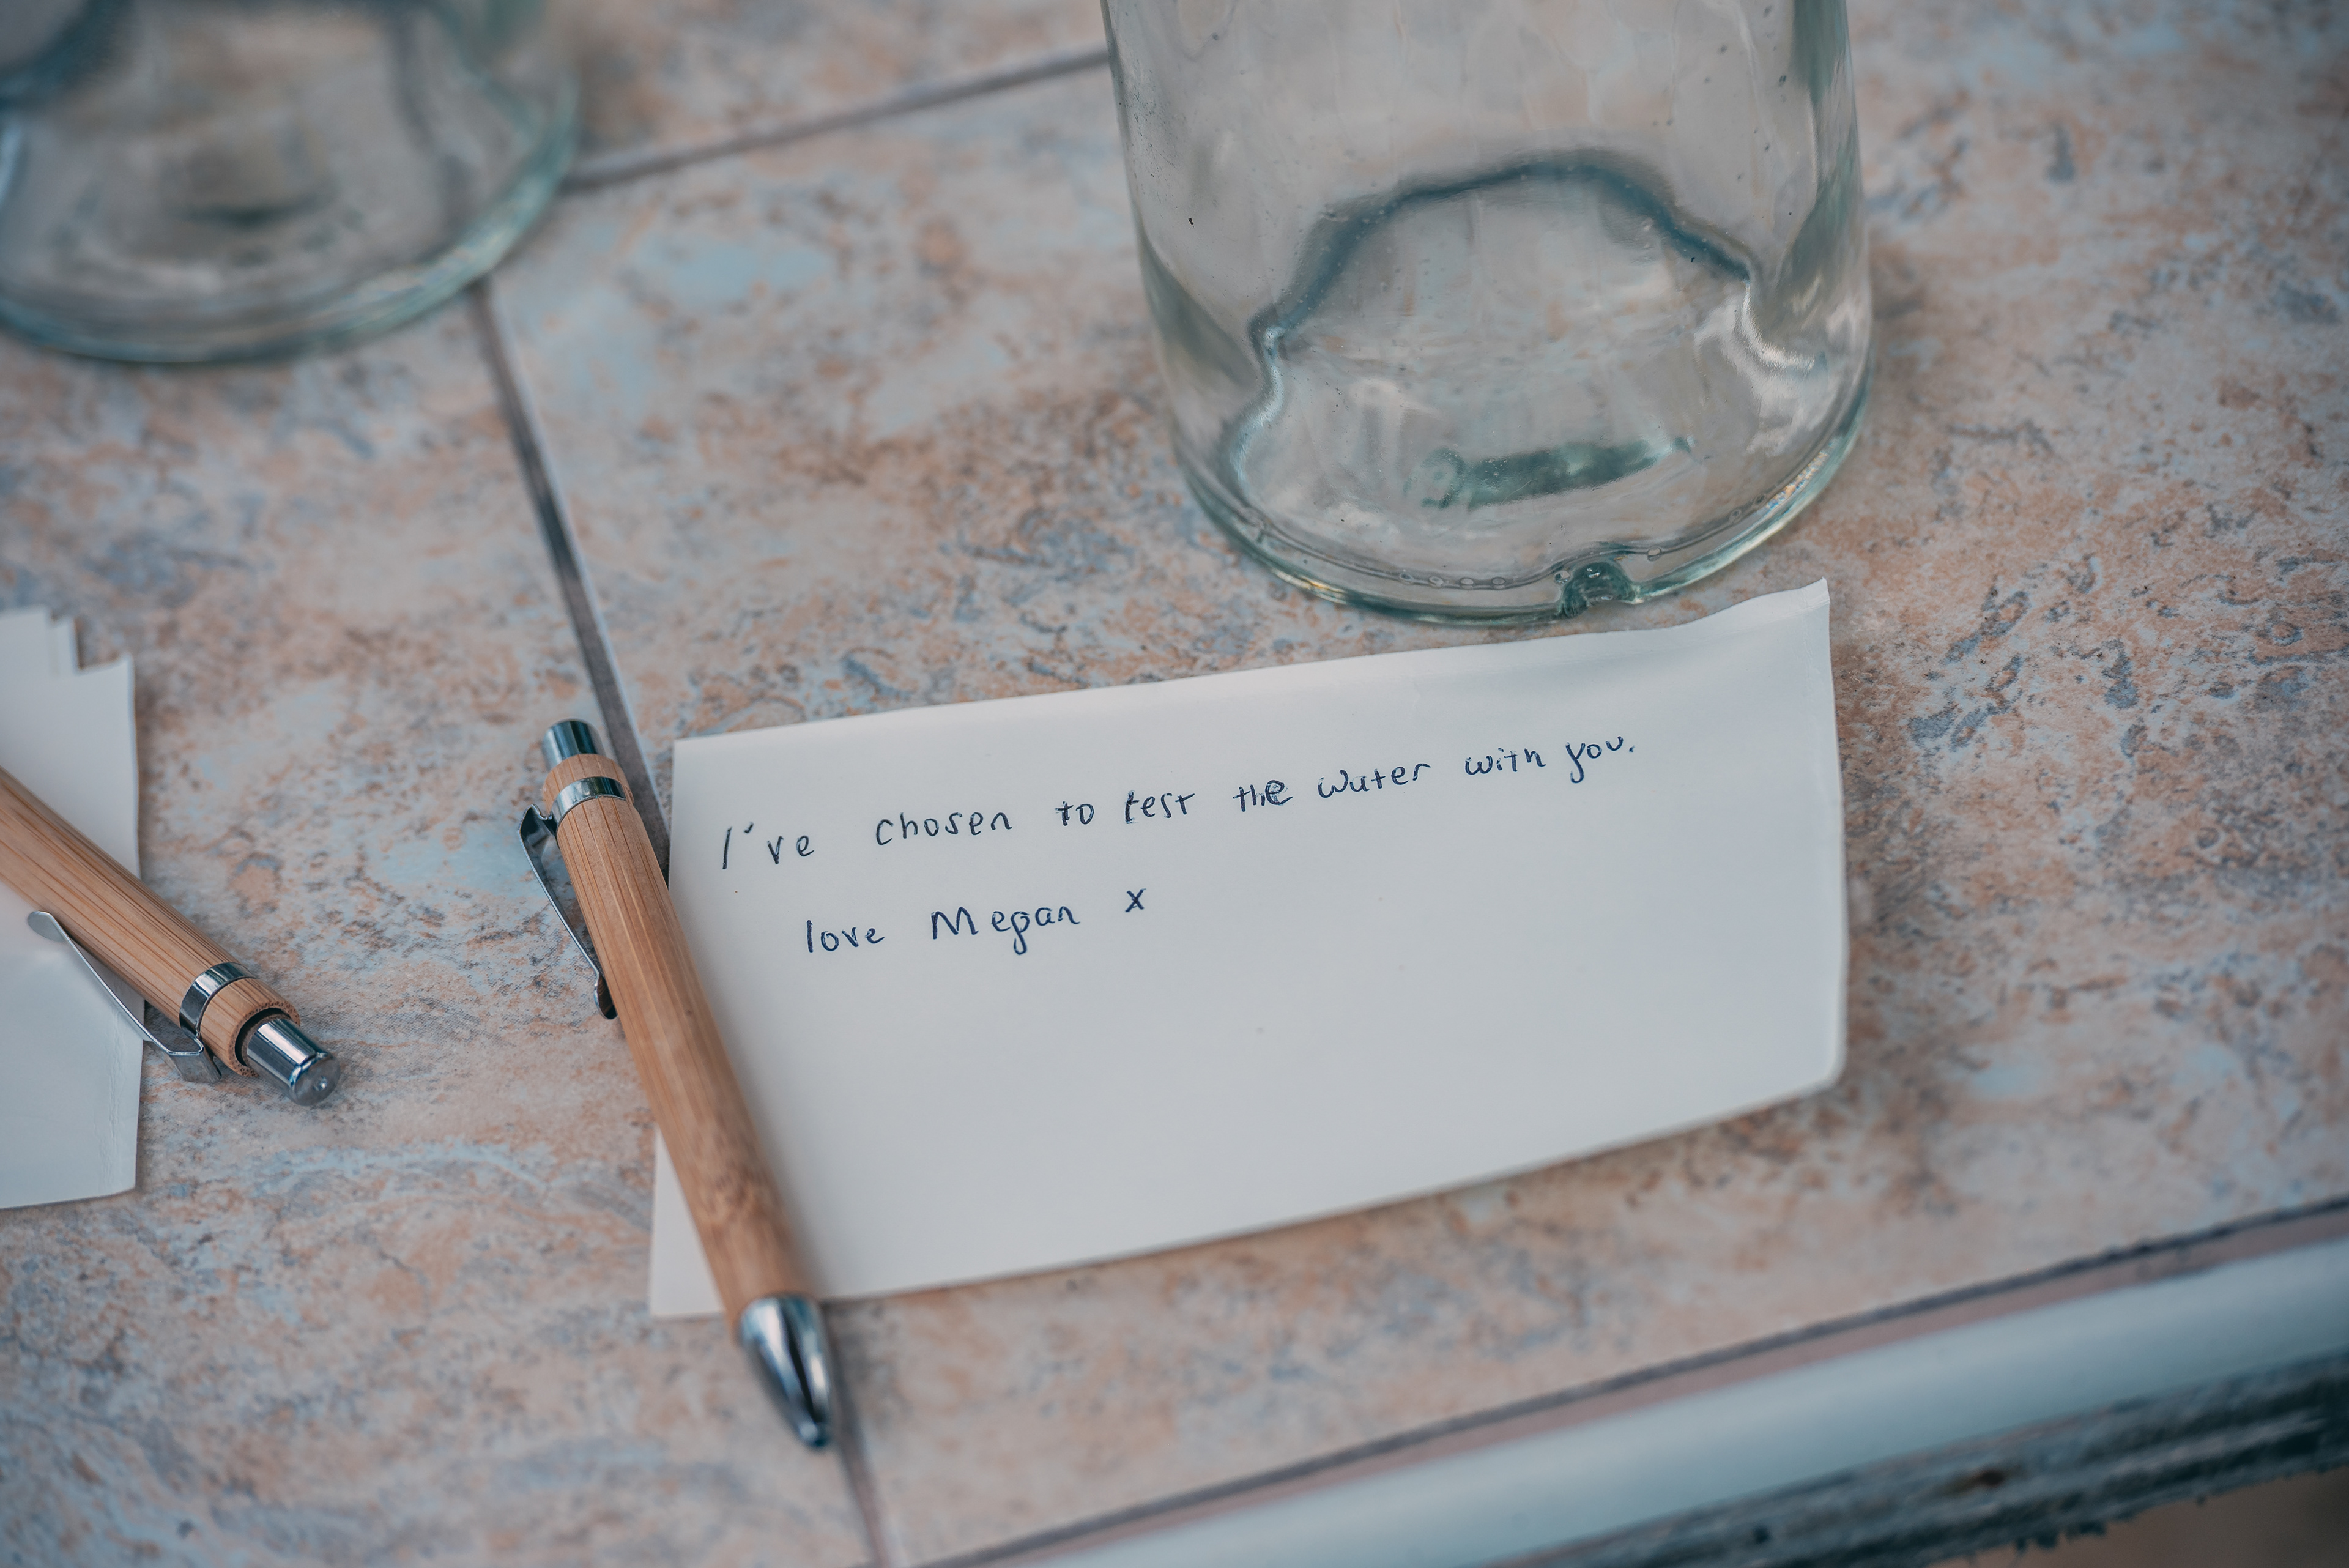 I've chosen to test the water with you.
love Megan x